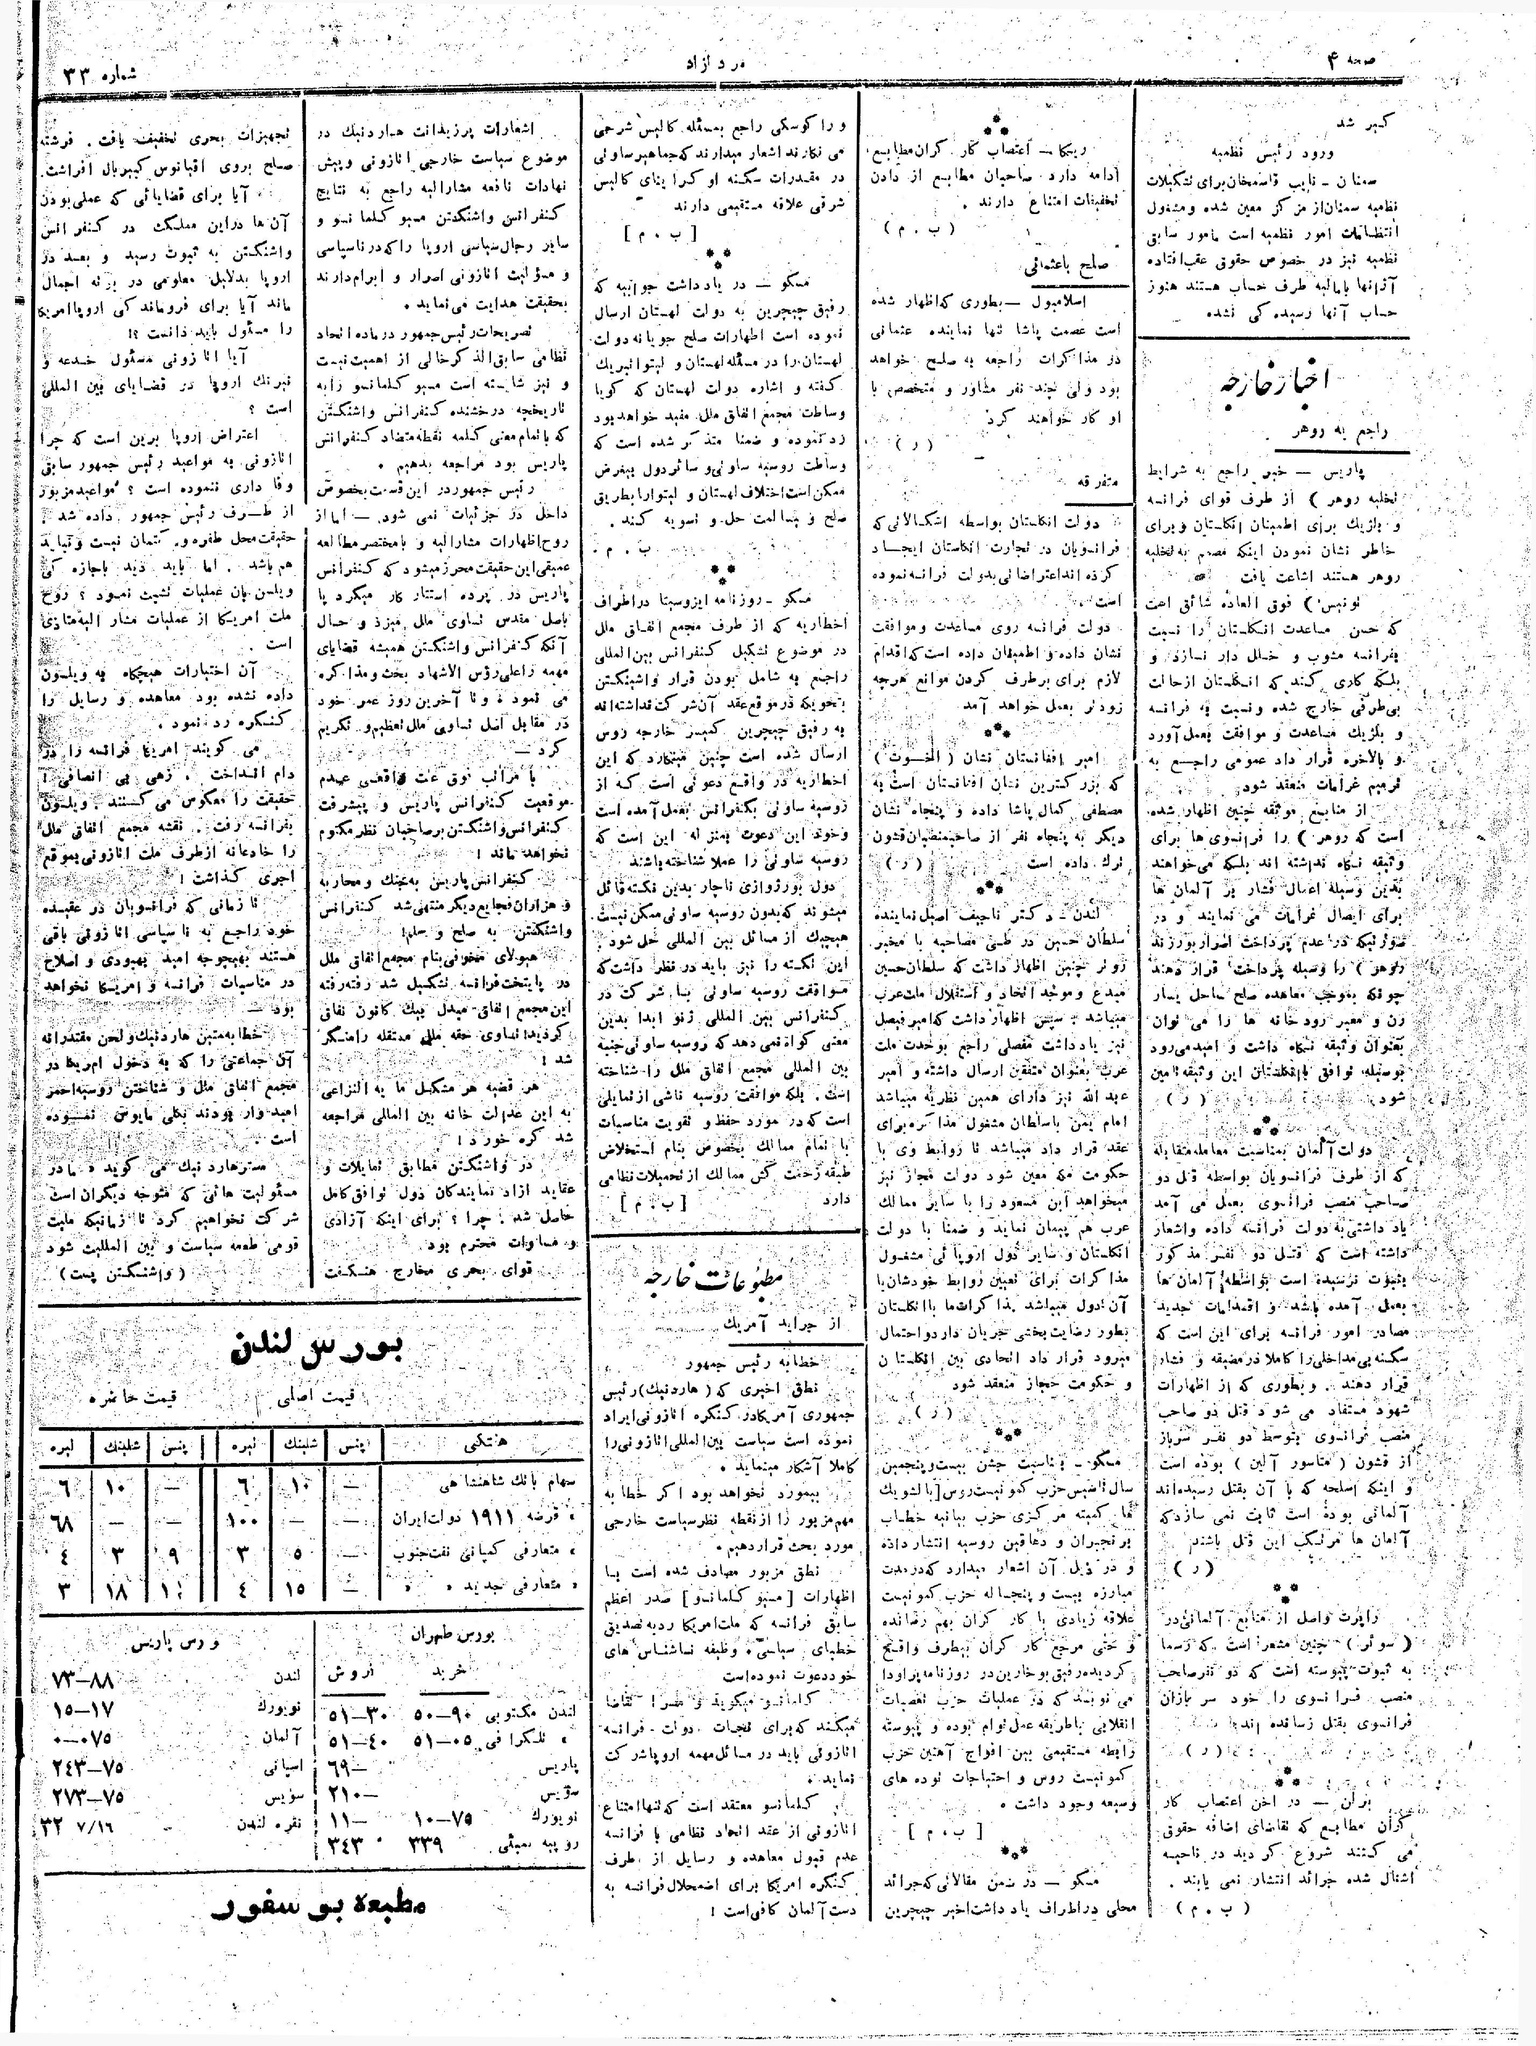 صفحه ۴
مرد آزاد
شماره ۳۳
گیر شد
ورود رئیس نظمیه
سمنان ـ نایب قاسمخان برای تشکیلات
نظمیه سمنان از مرکز معین شده و مشغول
انتظامات امور نظمیه است مأمور سابق
نظمیه نیز در خصوص حقوق عقب افتاده
آژانها با مالیه طرف حساب هستند هنوز
حساب آنها رسیده کی نشده
اخبار خارجه
راجع به روهر
پاریس — خبر راجع به شرایط
تخلیه روهر ) از طرف قوای فرانسه
و بلژیک برای اطمینان انگلستان و برای
خاطر نشان نمودن اینکه مصمم به تخلیه
روهر هستند اشاعت یافت
فوق العاده شائق است
که حسن مساعدت انگلستان را نسبت
بفرانسه مشوب و خلل دار نسازد و
بلکه کاری کند که انگلستان از حالت
بی طرفی خارج شده و نسبت به فرانسه
و بلژیک مساعدت و موافقت بعمل آورد
و بالاخره قرار داد عمومی راجع به
ترمیم غرامات منعقد شود
از منابع موثقه چنین اظهار شده
است که روهر ) را فرانسوی ها برای
وثیقه نگاه نداشته اند بلکه می خواهند
بدین وسیله اعمال فشار بر آلمان ها
برای ایصال غرامات می نمایند و در
صورتیکه در عدم پرداخت اصرار ورزند
روهر ) را وسیله پرداخت قرار دهند
چونکه بموجب معاهده صلح ساحل یسار
رن و معبر رودخانه ها را می توان
بعنوان وثیقه نگاه داشت و امید می رود
بوسیله توافق با انگلستان این وثیقه تامین
شود ( ر )
دولت آلمان بمناسبت معامله متقابله
که از طرف فرانسویان بواسطه قتل دو
صاحب منصب فرانسوی بعمل می آمد
یاد داشتی به دولت فرانسه داده و اشعار
داشته است که قتل دو نفر مذکور
بثبوت نرسیده است بواسطه آلمان ها
بعمل آمده باشد و اقدامات جدید
مصادر امور فرانسه برای این است که
سکنه بی مداخلی را کاملا در مضیقه و فشار
قرار دهند . و بطوری که از اظهارات
شهود مستفاد می شود قتل دو صاحب
منصب فرانسوی بتوسط دو نفر سرباز
از قشون ( متاسور آلپن ) بوده است
و اینکه اسلحه که با آن بقتل رسیده اند
آلمانی بوده است ثابت نمی سازد که
آلمان ها مرتکب این قتل باشند
( ر )
راپرت واصل از منابع آلمانی در
( سوئر ) چنین مشعر است که رسما
به ثبوت پیوسته است که دو نفر صاحب
منصب فرانسوی را خود سر بازان
فرانسوی بقتل رسانده اند ( ر )
برلن — در اخن اعتصاب کار
گران مطابع که تقاضای اضافه حقوق
می کنند شروع گردید در ناحیه
اشغال شده جرائد انتشار نمی یابند .
( ب . م )
ریگا — اعتصاب کار گران مطابع
ادامه دارد صاحبان مطابع از دادن
تخفیفات امتناع دارند .
( ب . م )
صلح با عثمانی
اسلامبول — بطوری که اظهار شده
است عصمت پاشا تنها نماینده عثمانی
در مذاکرات راجعه به صلح خواهد
بود ولی چند نفر مشاور و متخصص با
او کار خواهند کرد
( ر )
متفرقه
دولت انگلستان بواسطه اشکالاتی که
فرانسویان در تجارت انگلستان ایجاد
کرده اند اعتراضاتی بدولت فرانسه نموده
است .
دولت فرانسه روی مساعدت و موافقت
نشان داده و اطمینان داده است که اقدام
لازم برای برطرف کردن موانع هرچه
زودتر بعمل خواهد آمد
امیر افغانستان نشان (
که بزرگترین نشان افغانستان است به
مصطفی کمال پاشا داده و پنجاه نشان
دیگر به پنجاه نفر از صاحبمنصبان قشون
ترک داده است ( ر )
لندن ـ دکتر ناجیف اصیل نماینده
سلطان حسین در طی مصاحبه با مخبر
روتر چنین اظهار داشت که سلطان حسین
مبدع و موجد اتحاد و استقلال ملت عرب
میباشد . سپس اظهار داشت که امیر فیصل
نیز یادداشت مفصلی راجع بوحدت ملت
عرب بعنوان متفقین ارسال داشته و امیر
عبدالله نیز دارای همین نظریه میباشد
امام یمن با سلطان مشغول مذاکره برای
عقد قرار داد میباشد تا روابط وی با
حکومت مکه معین شود دولت حجاز نیز
میخواهد ابن مسعود را با سایر ممالک
عرب هم پیمان نماید و ضمنا با دولت
انگلستان و سایر دول اروپائی مشغول
مذاکرات برای تعیین روابط خودشان با
آن دول میباشد مذاکرات ما با انگلستان
بطور رضایت بخشی جریان دارد و احتمال
میرود قرار داد اتحادی بین انگلستان
و حکومت حجاز منعقد شود
( ر )
مسکو ـ بمناسبت جشن بیست و پنجمین
سال تاسیس حزب کمونیست روس [ بالشویک
ها کمیته مرکزی حزب بیانیه خطاب
برنجبران و دهاقین روسیه انتشار داده
و در ذیل آن اشعار میدارد که در مدت
مبارزه بیست و پنجساله حزب کمونیست
علاقه زیادی با کار گران بهم رسانده
و حتی مرجع کار گران بیطرف واقع
گردیده رفیق بوخارین در روزنامه پراودا
می نویسد که در عملیات حزب تعصبات
انقلابی با طریقه عمل توام بوده و پیوسته
رابطه مستقیمی بین افواج آهنین حزب
کمونیست روس و احتیاجات توده های
وسیعه وجود داشت .
[ ب . م ]
مسکو — در ضمن مقالاتی که جرائد
محلی در اطراف یادداشت اخیر چیچرین
و راکوسکی راجع بمسئله گالیس شرحی
می نگارند اشعار میدارند که جماهیر ساوتی
در مقدرات سکنه اوکراینای گالیس
شرقی علاقه مستقیمی دارند
[ ب . م ]
مسکو — در یادداشت جوابیه که
رفیق چیچرین به دولت لهستان ارسال
نموده است اظهارات صلح جویانه دولت
لهستان را در مسئله لهستان و لیتوانی تبریک
گفته و اشاره دولت لهستان که گویا
وساطت مجمع اتفاق ملل مفید خواهد بود
رد نموده و ضمنا متذکر شده است که
وساطت روسیه ساوتی و سائر دول بیغرض
ممکن است اختلاف لهستان و لیتوا را بطریق
صلح و مسالمت حل و تسویه کند .
ب . م .
مسکو ـ روزنامه ایزوستیا در اطراف
اخطاریه که از طرف مجمع اتفاق ملل
در موضوع تشکیل کنفرانس بین المللی
راجع به شامل بودن قرار واشنگتن
بنحویکه در موقع عقد آن شرکت نداشته اند
به رفیق چیچرین کمیسر خارجه روس
ارسال شده است چنین مینگارد که این
اخطاریه در واقع دعوتی است که از
روسیه ساوتی بکنفرانس بعمل آمده است
و خود این دعوت بمنزله این است که
روسیه ساوتی را عملا شناخته باشند
دول بورژوازی ناچار بدین نکته قائل
میشوند که بدون روسیه ساوتی ممکن نیست
هیچیک از مسائل بین المللی حل شود .
این نکته را نیز باید در نظر داشت که
موافقت روسیه ساوتی با شرکت در
کنفرانس بین المللی ژنو ابدا بدین
معنی گواه نمی دهد که روسیه ساوتی جنبه
بین المللی مجمع اتفاق ملل را شناخته
است . بلکه موافقت روسیه ناشی از تمایلی
است که در مورد حفظ و تقویت مناسبات
با تمام ممالک بخصوص بنام استخلاص
طبقه زحمت کش ممالک از تحمیلات نظامی
دارد [ ب . م ]
مطبوعات خارجه
از جراید آمریک
خطابه رئیس جمهور
نطق اخیری که ( هاردنیک ) رئیس
جمهوری آمریکا در کنگره اتازونی ایراد
نموده است سیاست بین المللی اتازونی را
کاملا آشکار مینماید .
بیمورد نخواهد بود اگر خطابه
مهم مزبور را از نقطه نظر سیاست خارجی
مورد بحث قرار دهیم .
نطق مزبور مصادف شده است با
اظهارات [ مسیو کلمانسو ] صدر اعظم
سابق فرانسه که ملت امریکا رد به تصدیق
خطبای سیاسی وظیفه نشناس های
خود دعوت نموده است
کلمانسو میگوید و مصرا تقاضا
میکند که برای نجات دولت فرانسه
اتازونی باید در مسائل مهمه اروپا شرکت
نماید .
کلمانسو معتقد است که تنها امتناع
اتازونی از عقد اتحاد نظامی با فرانسه
عدم قبول معاهده ورسایل از طرف
کنگره امریکا برای اضمحلال فرانسه به
دست آلمان کافی است !
اشعارات پرزیدانت هاردنیک در
موضوع سیاست خارجی اتازونی و پیش
نهادات نافعه مشارالیه راجع به نتایج
کنفرانس واشنگتن مسیو کلمانسو و
سایر رجال سیاسی اروپا را که در ناسپاسی
و مسؤلیت اتازونی اصرار و ابرام دارند
بحقیقت هدایت می نماید .
تصریحات رئیس جمهور در ماده اتحاد
نظامی سابق الذکر خالی از اهمیت نیست
و نیز شایسته است مسیو کلمانسو را به
تاریخچه درخشنده کنفرانس واشنگتن
که با تمام معنی کلمه نقطه متضاد کنفرانس
پاریس بود مراجعه بدهیم .
رئیس جمهور در این قسمت بخصوص
داخل در جزئیات نمی شود . — اما از
روح اظهارات مشارالیه و با مختصر مطالعه
عمیقی این حقیقت محرز میشود که کنفرانس
پاریس در پرده استتار کار میکرد با
اصل مقدس تساوی ملل مبرز و حال
آنکه کنفرانس واشنگتن همیشه قضایای
مهمه را علی رؤس الأشهاد بحث و مذاکره
می نمود . و تا آخرین روز عمر خود
در مقابل اصل تساوی ملل تعظیم و تکریم
کرد —
با مراتب فوق علت واقعی عدم
موفقیت کنفرانس پاریس و پیشرفت
کنفرانس واشنگتن بر صاحبان نظر مکتوم
نخواهد ماند !
کنفرانس پاریس به جنک و محاربه
و هزاران فجایع دیگر منتهی شد کنفرانس
واشنگتن به صلح و سلم !
هیولای مخوفی بنام مجمع اتفاق ملل
در پایتخت فرانسه تشکیل شد رفته رفته
این مجمع اتفاق مبدل بیک کانون نفاق
گردید ! تساوی حقه ملل مستقله
شد !
هر قضیه هر مشکل ما به النزاعی
به این عدالت خانه بین المللی مراجعه
شد گره خورد !
در واشنگتن مطابق تمایلات و
عقاید آزاد نمایندگان دول توافق کامل
حاصل شد . چرا ؟ برای اینکه آزادی
و مساوات محترم بود
قوای بحری مخارج هنگفت
تجهیزات بحری تخفیف یافت . فرشته
صلح بروی اقیانوس کبیر بال افراشت
آیا برای قضایائی که عملی بودن
آن ها در این مملکت در کنفرانس
واشنگتن به ثبوت رسید و بعد در
اروپا بدلایل معلومی در بوته اجمال
ماند آیا برای فروماندگی اروپا امریکا
را مسئول باید دانست ؟!
آیا اتازونی مسئول خدعه و
نیرنک اروپا در قضایای بین المللی
است ؟
اعتراض اروپا برین است که چرا
اتازونی به مواعید رئیس جمهور سابق
وفا داری ننموده است ؟ مواعید مزبور
از طرف رئیس جمهور داده شد .
حقیقت محل طفره و کتمان نیست و نباید
هم باشد . اما باید دید باجازه کی
ویلسن بان عملیات تشبث نمود ؟ روح
ملت امریکا از عملیات مشارالیه متاذی
است .
آن اختیارات هیچگاه به ویلسون
داده نشده بود معاهده ورسایل را
کنگره رد نمود .
می گویند امریکا فرانسه را در
دام انداخت . زهی بی انصافی !
حقیقت را معکوس می کنند . ویلسون
بفرانسه رفت . نقشه مجمع اتفاق ملل
را خادعانه از طرف ملت اتازونی بموقع
اجری گذاشت !
تا زمانی که فرانسویان در عقیده
خود راجع به ناسپاسی اتازونی باقی
هستند بهیچوجه امید بهبودی و اصلاح
در مناسبات فرانسه و امریکا نخواهد
بود —
خطابه متین هاردنیک و لحن مقتدرانه
آن جماعتی را که به دخول امریکا در
مجمع اتفاق ملل و شناختن روسیه احمر
امیدوار بودند بکلی مایوس نموده
است .
مستر هاردنیک می گوید « ما در
مسئولیت هائی که متوجه دیگران است
شرکت نخواهیم کرد تا زمانیکه ملیت
قومی طعمه سیاست و بین المللیت شود
( واشنگتن پست )
بورس لندن
قیمت اصلی قیمت حاضره
هفتگی پنس شلینک لیره پنس شلینک لیره
سهام بانک شاهنشاهی — ۱۰ ۶ — ۱۰ ۶
« قرضه ۱۹۱۱ دولت ایران — — ۱۰۰ — — ۶۸
« متعارفی کمپانی نفت جنوب — ۵ ۳ ۹ ۳ ٤
« متعارفی جدید « « — ۱۵ ٤ ۱۸ ۳
بورس طهران
خرید فروش
لندن مکتوبی ۹۰—۵۰ ۳۰—۵۱
« تلگرافی ۰۵—۵۱ ٤۰—۵۱
پاریس —۶۹
سویس —۲۱۰
نویورک ۷۵—۱۰ —۱۱
روپیه بمبئی ۳۳۹ ۳٤۳
ورس پاریس
لندن ۸۸—۷۳
نویورک ۱۷—۱۵
آلمان ۰۷۵—۰
اسپانی ۷۵—۲٤۳
سویس ۷۵—۲۷۳
نقره لندن ۷/۱۶ ۳۲
مطبعه بوسفور